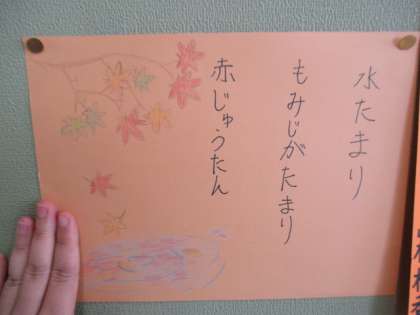 水たまり
もみじがたまり
赤じゅうたん